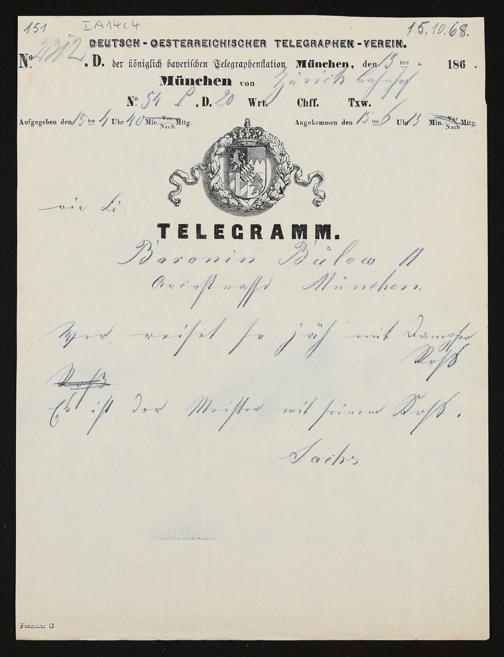 151
I A 14 c 4
15.10.68.
DEUTSCH-OESTERREICHISCHER TELEGRAPHEN-VEREIN.
No. 2312. D. der königlich bayerischen Telegraphenstation München, den 15 ten 186 .
München von Zürich Bahnhof
No. 54 P. D. 20 Wrt. Chff. Txw.
Aufgegeben den 15 ten 4 Uhr 40 Min. Vor Nach Mttg. Angekommen den 15 ten 6 Uhr 13 Min. Vor Nach Mttg.
via Li.
TELEGRAMM.
Baronin Bülow 11
Arcostrasse München.
Wer reist so jäh mit Dampfes
Roß
Es ist der Meister mit seinem Roß.
Sachs
Formular G